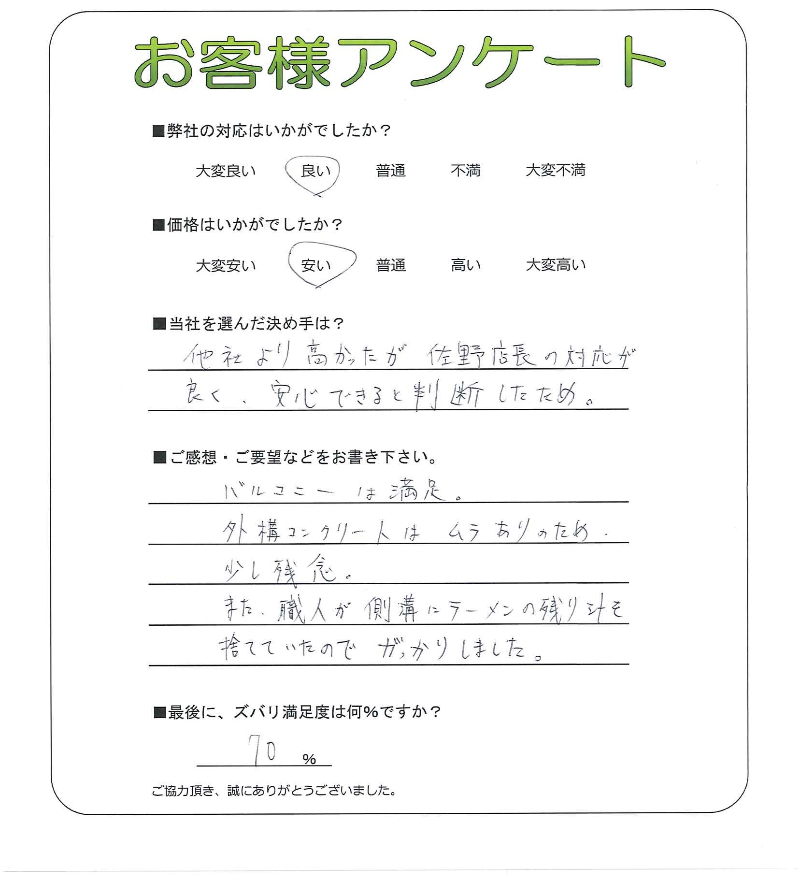 お客様アンケート
■弊社の対応はいかがでしたか?
大変良い 良い 普通 不満 大変不満
■価格はいかがでしたか?
大変安い 安い 普通 高い 大変高い
■当社を選んだ決め手は?
他社より高かったが 佐野店長の対応が
良く、安心できると判断したため。
■ご感想・ご要望などをお書き下さい。
バルコニーは満足。
外構コンクリートは ムラありのため、
少し残念。
また、職人が側溝にラーメンの残り汁を
捨てていたので がっかりしました。
■最後に、ズバリ満足度は何%ですか?
70 %
ご協力頂き、誠にありがとうございました。